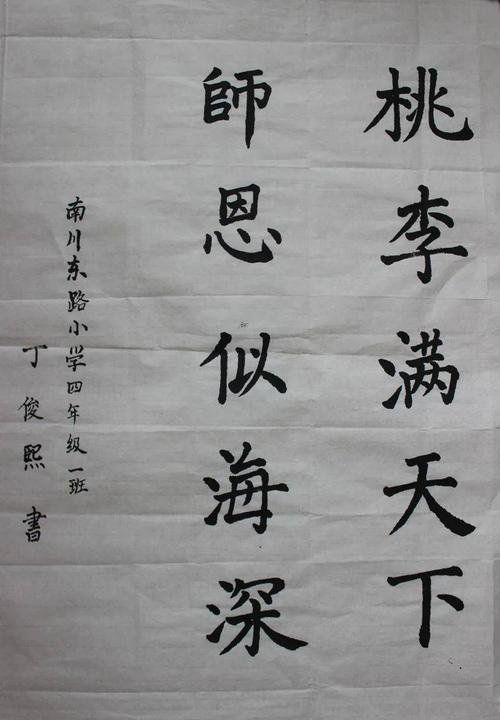 桃李满天下
師恩似海深
南川东路小学四年级一班
丁俊熙書